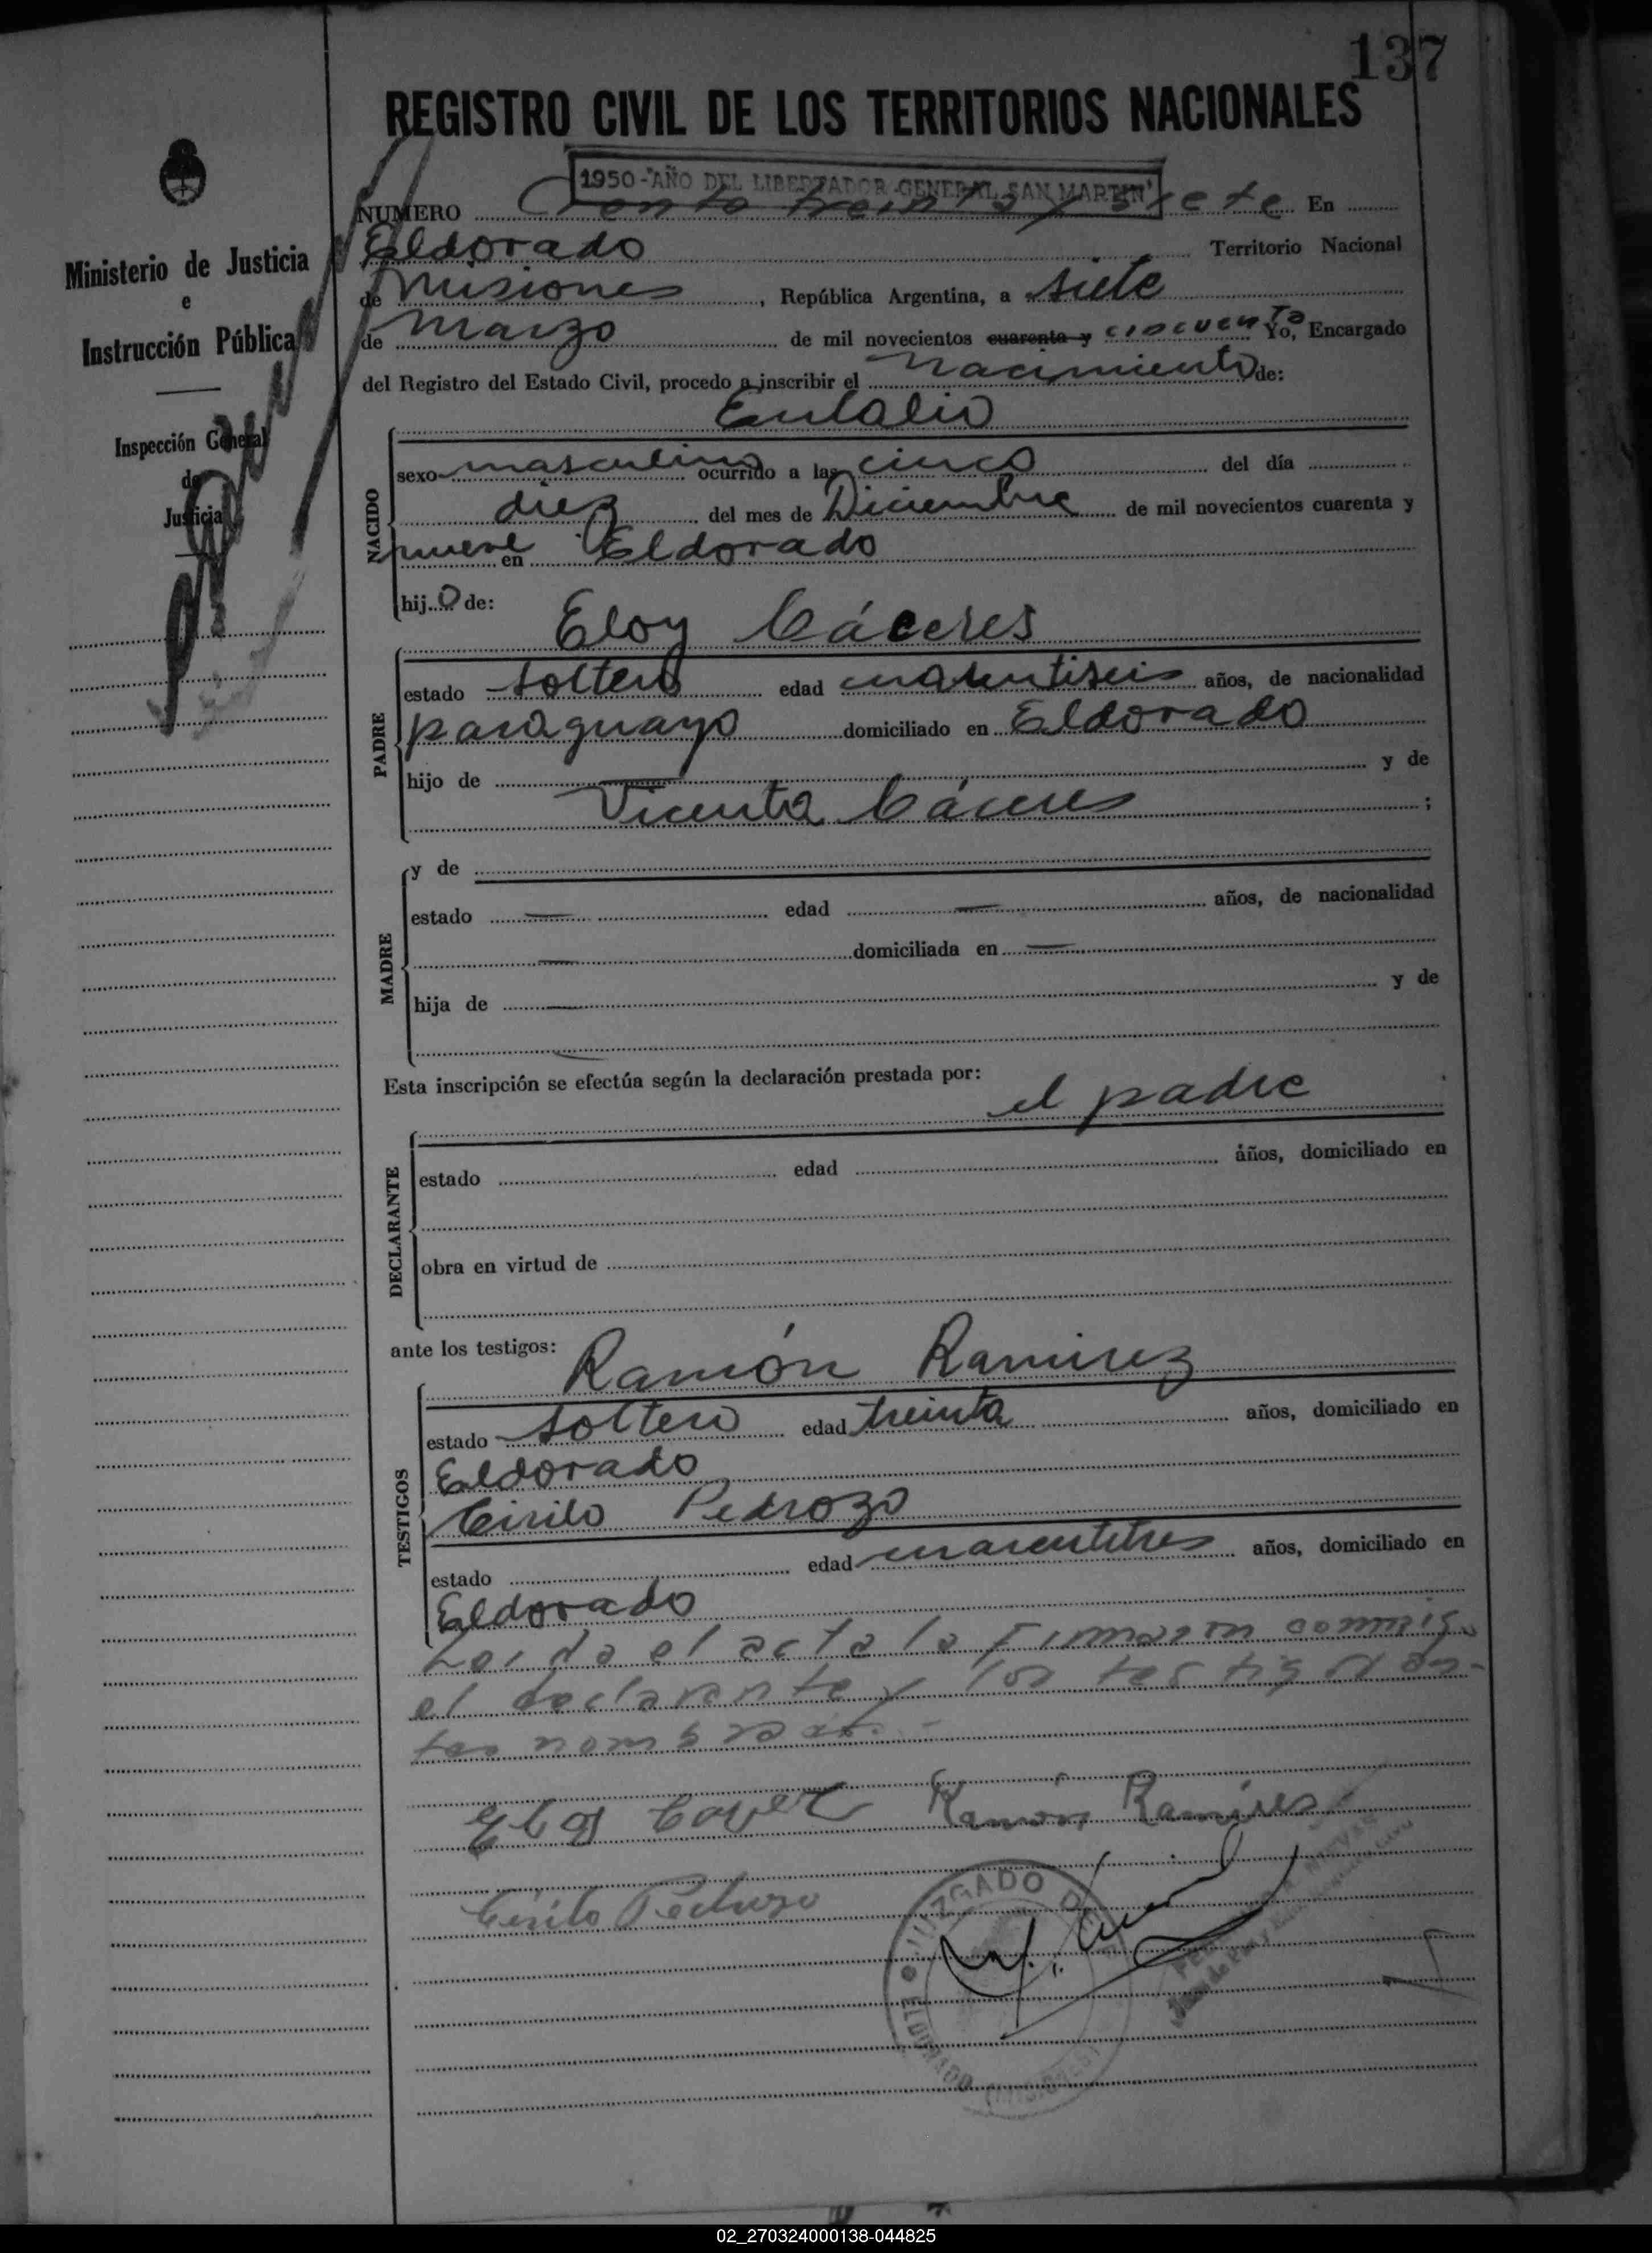 137
REGISTRO CIVIL DE LOS TERRITORIOS NACIONALES
1950-"AÑO DEL LIBERTADOR GENERAL SAN MARTIN"
NUMERO Ciento treinta y siete En
Eldorado Territorio Nacional
de Misiones, República Argentina, a siete
de Marzo de mil novecientos cuarenta y cincuenta Yo, Encargado
del Registro del Estado Civil, procedo a inscribir el Nacimiento de:
Eulalio
sexo masculino ocurrido a las cinco del día
diez del mes de Diciembre de mil novecientos cuarenta y
nueve en Eldorado
hijo de:
Eloy Cáceres
estado soltero edad cuarentiseis años, de nacionalidad
paraguayo domiciliado en Eldorado
hijo de y de
Vicenta Cáceres ;
y de
estado — edad — años, de nacionalidad
— domiciliada en —
hija de — y de
—
Esta inscripción se efectúa según la declaración prestada por:
el padre
estado edad años, domiciliado en
obra en virtud de
ante los testigos:
Ramón Ramirez
estado soltero edad treinta años, domiciliado en
Eldorado
Cirilo Pedrozo
estado edad cuarentitres años, domiciliado en
Eldorado
Leida el acta la firmaron conmigo
el declarante y los testigos an-
tes nombrados.-
Eloy Ramón Ramires
Cirilo Pedrozo
JUZGADO DE
ELDORADO
Ministerio de Justicia
e
Instrucción Pública
Inspección General
de
Justicia
NACIDO
PADRE
MADRE
DECLARANTE
TESTIGOS
02_270324000138-044825